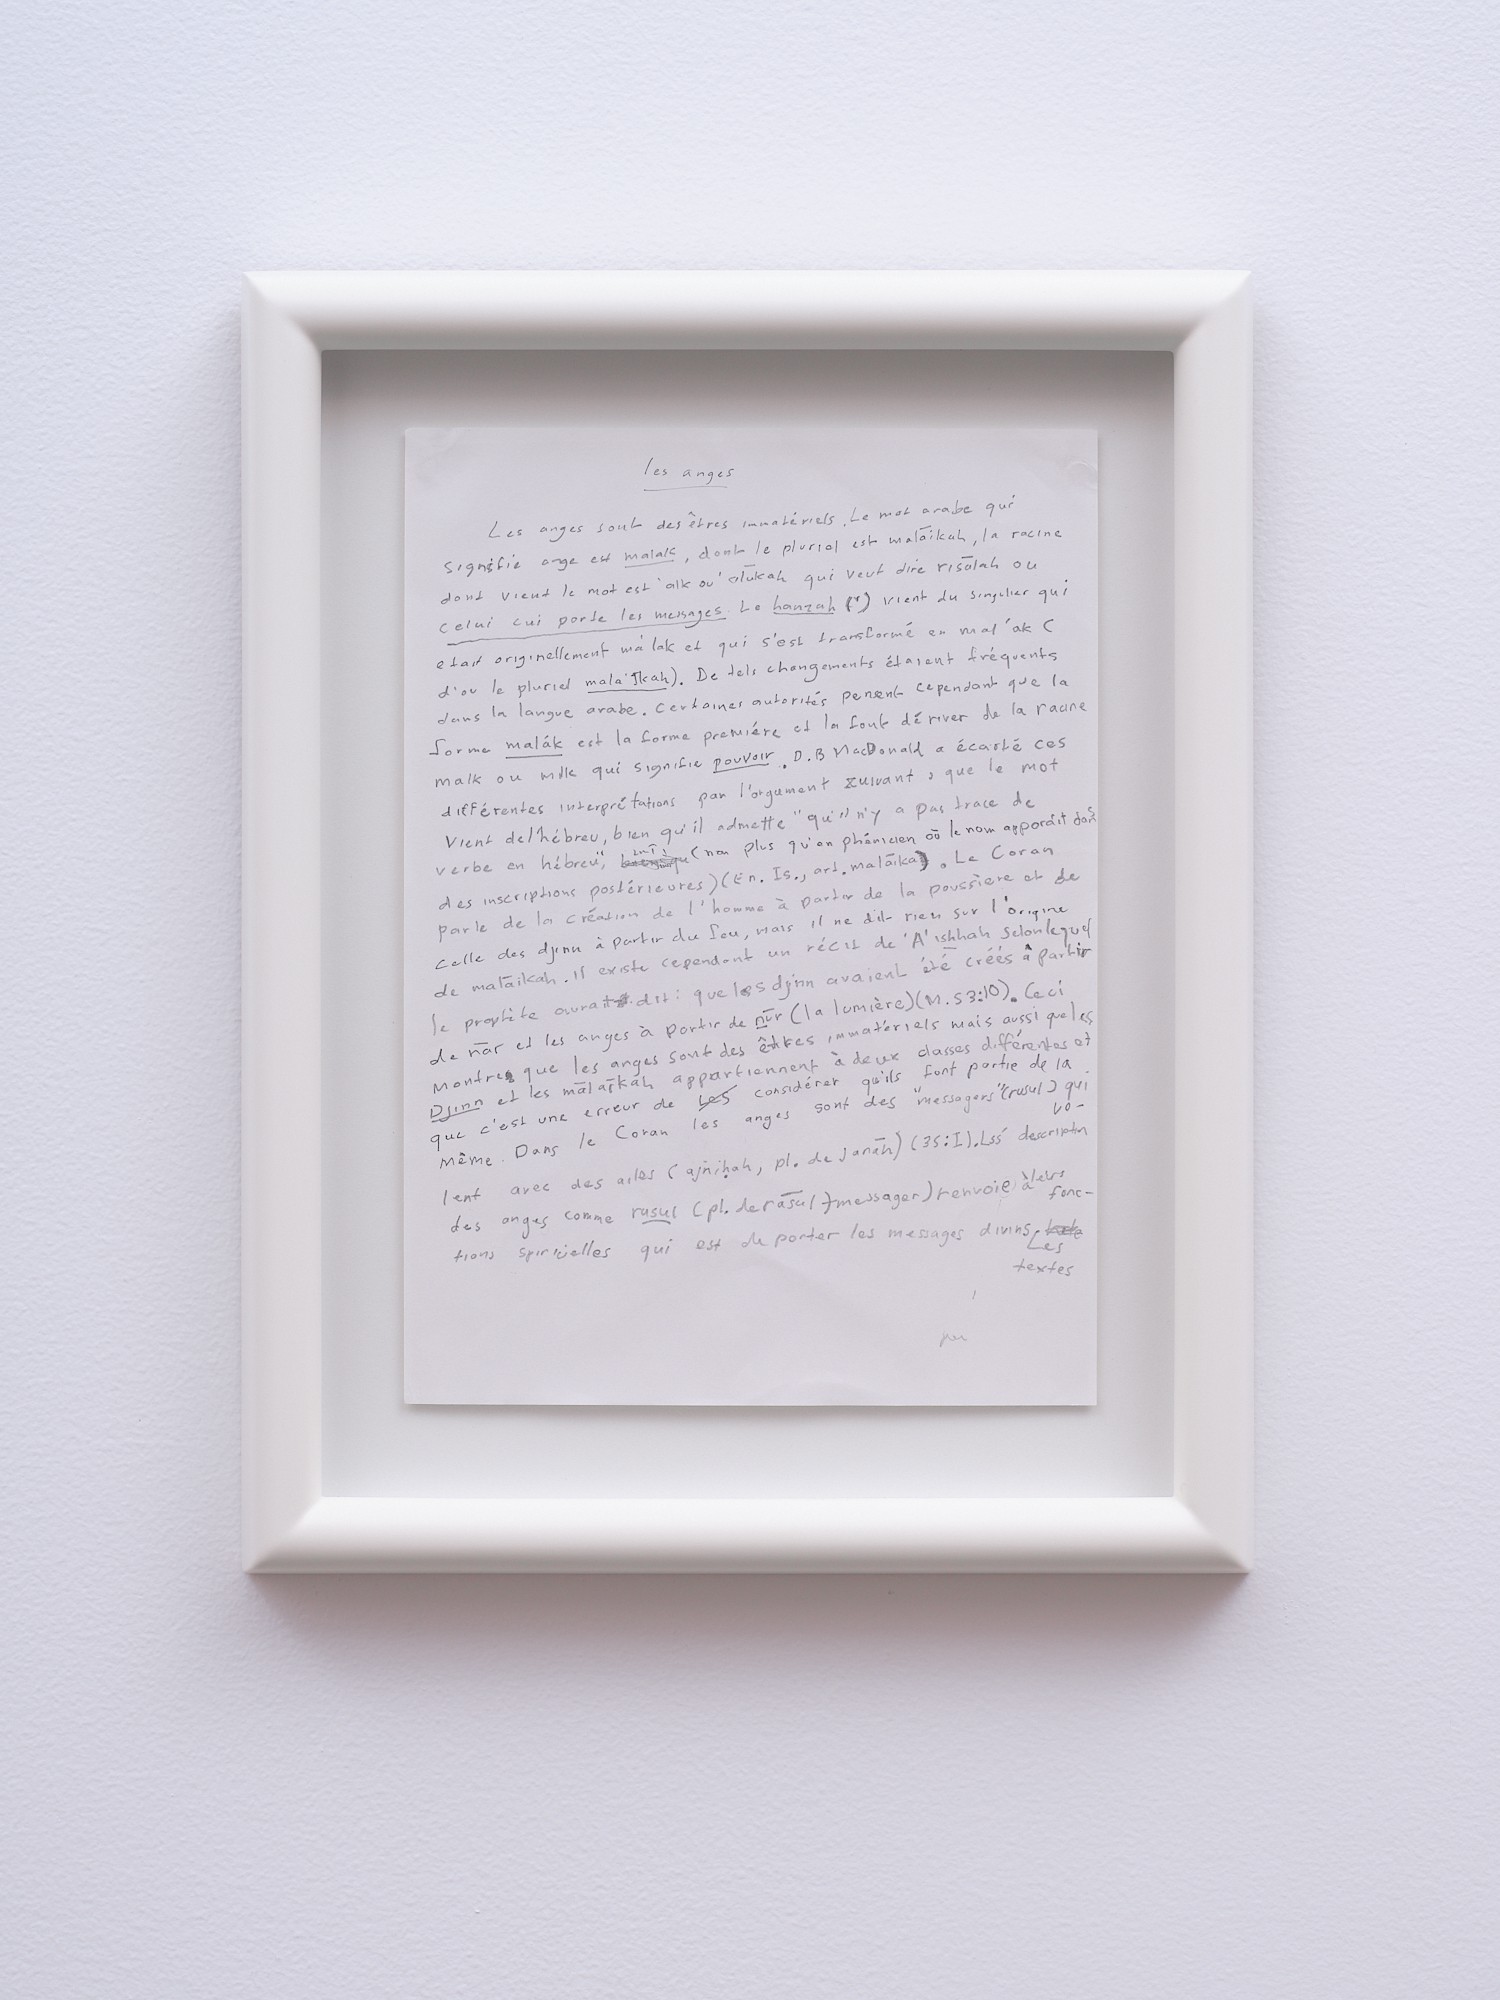 les anges
Les anges sont des êtres immatériels. Le mot arabe qui
signifie ange est malak, dont le pluriel est malāikah, la racine
dont vient le mot est 'alk ou' alūkah qui veut dire risālah ou
celui cui porte les messages. Le hanzah (') vient du singulier qui
etait originellement ma'lak et qui s'est transformé en mal'ak (
d'ou le pluriel mala'īkah). De tels changements étaient fréquents
dans la langue arabe. Certaines autorités pensent cependant que la
forme malák est la forme première et la font dériver de la racine
malk ou milk qui signifie pouvoir. D.B MacDonald a écarté ces
différentes interprétations par l'argument suivant, que le mot
vient del'hébreu, bien qu'il admette "qu'il n'y a pas trace de
verbe en hébreu", (non plus qu'en phénicien où le nom apparait dans
des inscriptions postérieures) (En. Is., art. malāika). Le Coran
parle de la création de l'homme à partir de la poussière et de
celle des djinn à partir du feu, mais il ne dit rien sur l'origine
de malāikah. Il existe cependant un récit de 'A'ishhah selon lequel
le prophète aurait dit: que les djinn avaient été créés à partir
de nār et les anges à partir de nūr (la lumière) (M. 53:10). Ceci
montre que les anges sont des êtres immatériels mais aussi que les
Djinn et les mālaīkah appartiennent à deux classes différentes et
que c'est une erreur de les considérer qu'ils font partie de la
même. Dans le Coran les anges sont des "messagers" (rusul) qui
vo-
lent avec des ailes (ajniḥah, pl. de janāh) (35:I). Les description
des anges comme rusul (pl. de rāsul, messager) renvoie à leurs
fonc-
tions spirituelles qui est de porter les messages divins. Les
textes